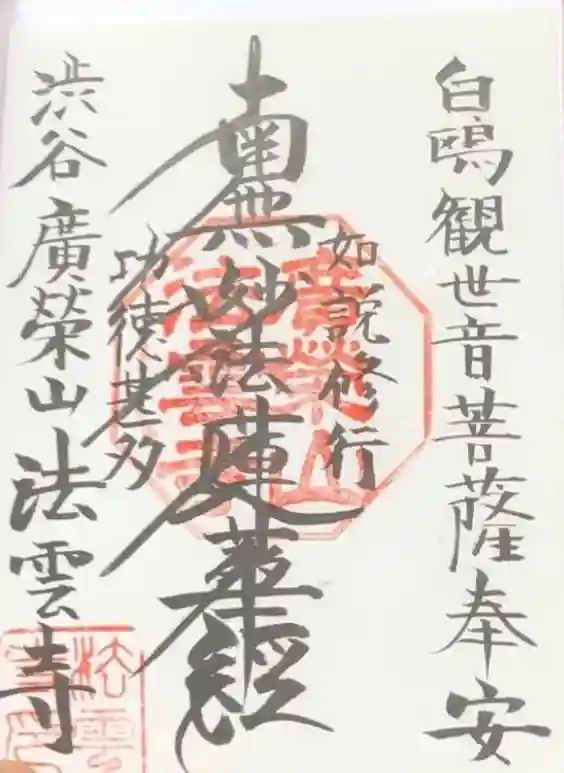 白鴎観世音菩薩奉安
如説修行
南無妙法蓮華経
功徳甚多
渋谷廣榮山法雲寺
廣榮山
法雲寺